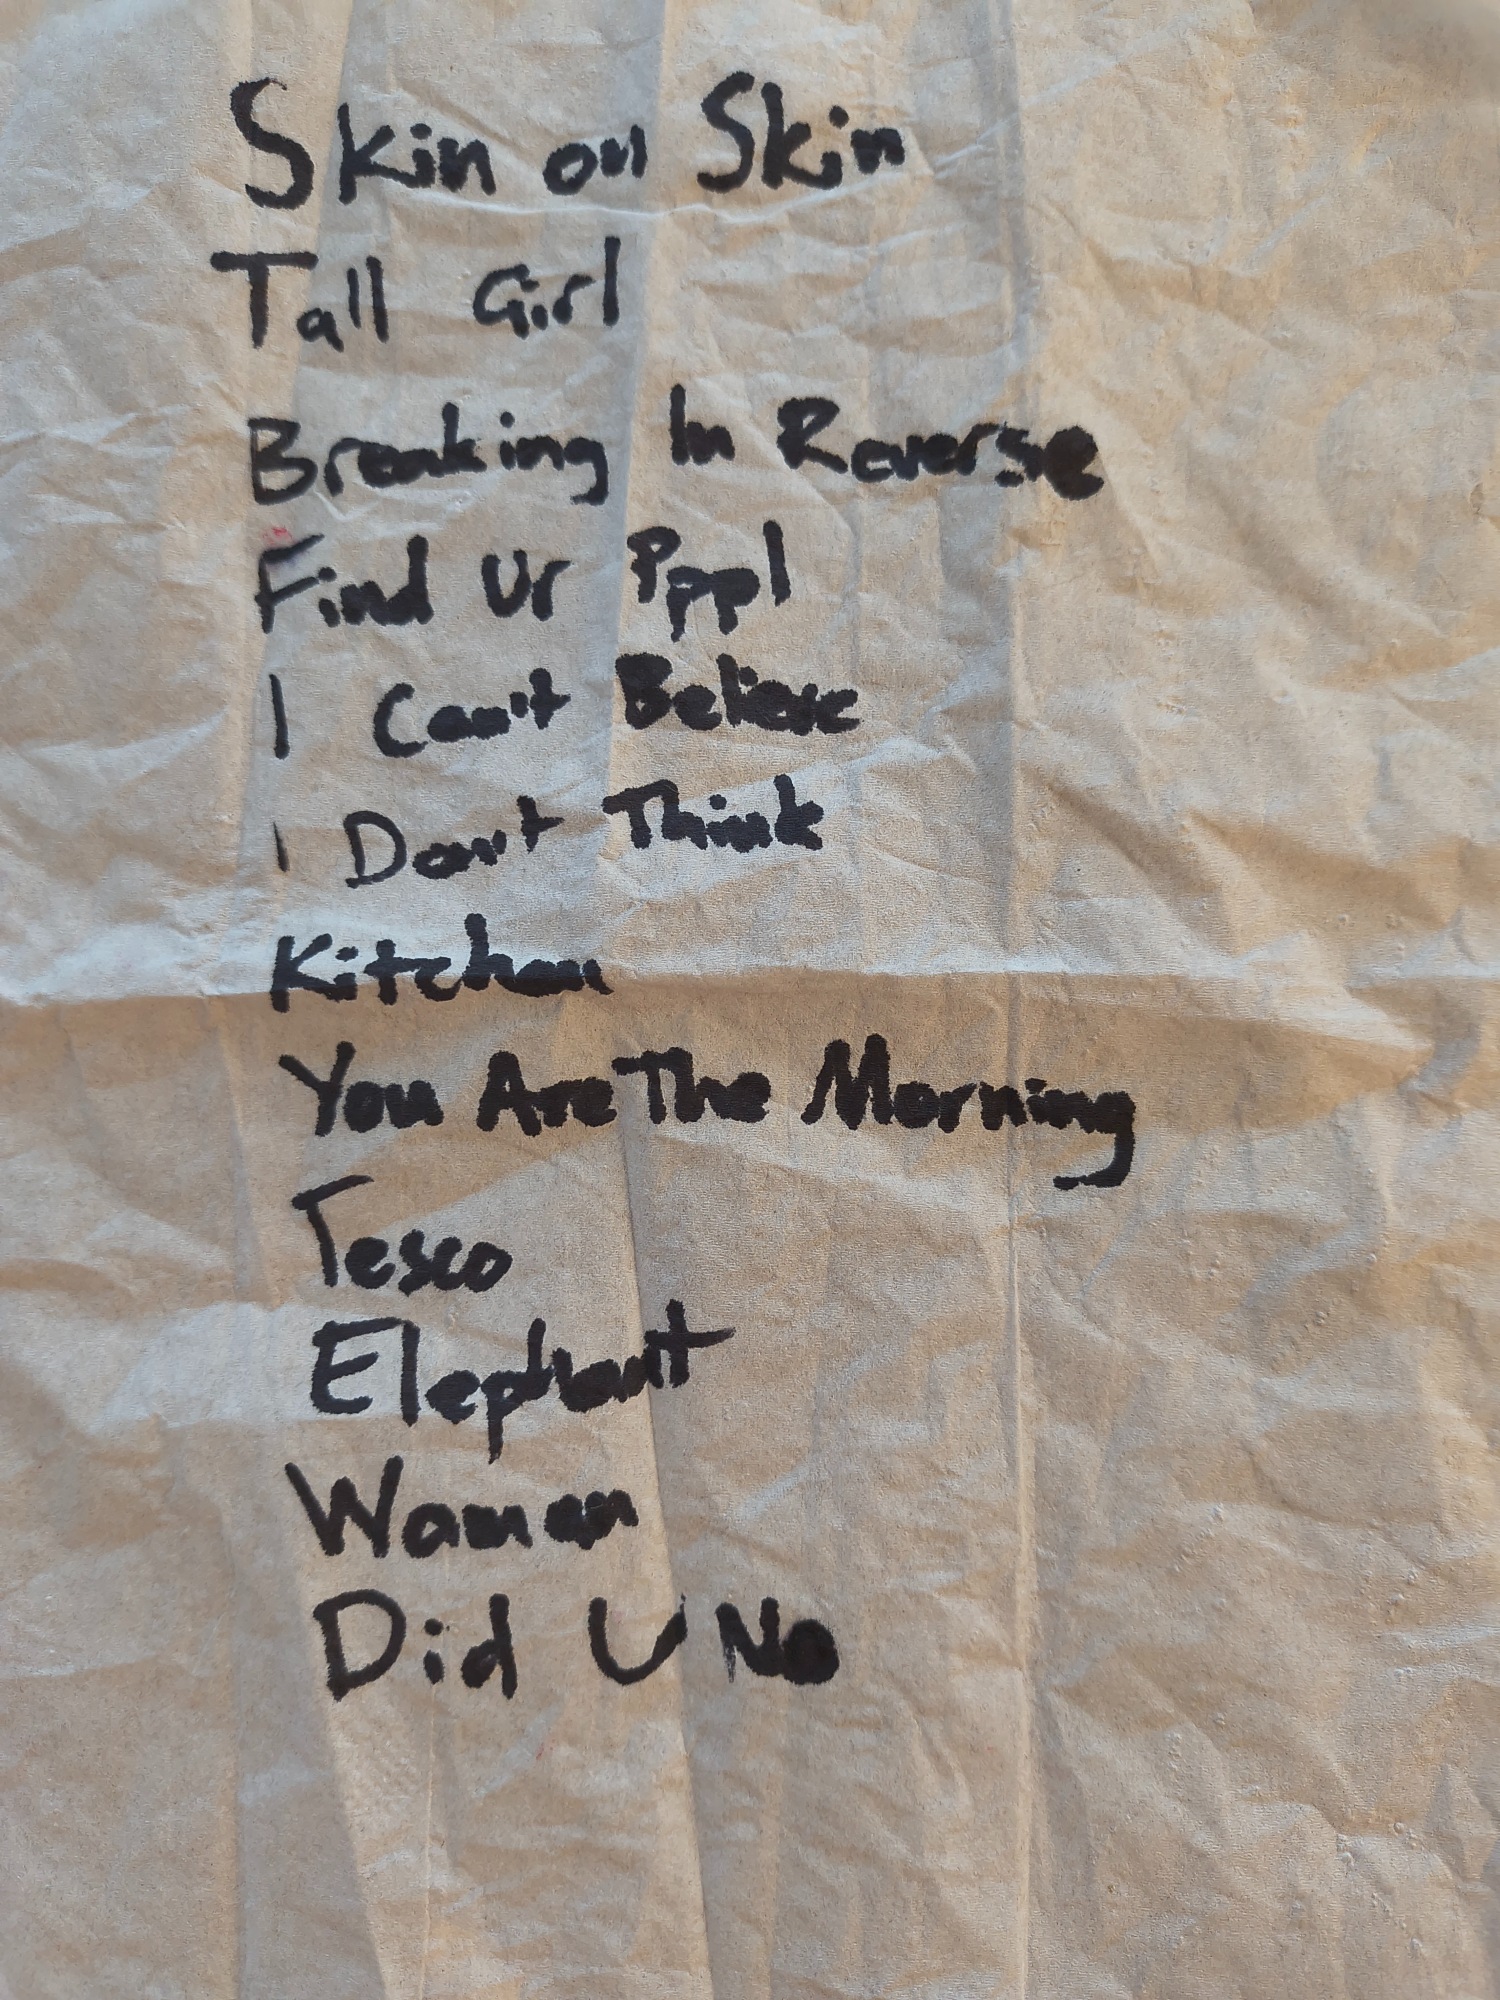 Skin on Skin
Tall Girl
Breaking In Reverse
Find Ur Pppl
I Can't Believe
I Don't Think
Kitchen
You Are The Morning
Tesco
Elephant
Woman
Did U No